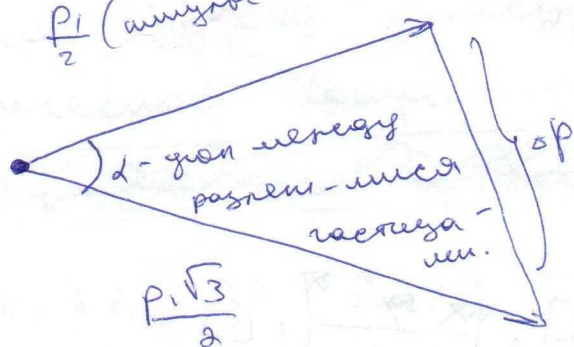 p₁/2 (импульс
α - угол между
разлет-мися
частица-
ми.
Δp
p₁√3/2